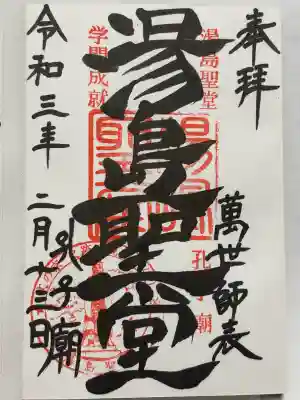 奉拝
萬世師表
湯島聖堂
湯島聖堂
孔子廟
学問成就
孔子廟
令和三年 二月十三日